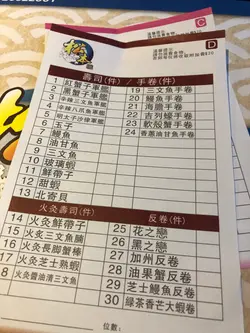 C
D
壽司(件) / 手卷(件)
1 紅蟹子軍艦
2 黑蟹子軍艦
3 辛辣三文魚軍艦
4 辛辣八爪魚軍艦
5 明太子沙律軍艦
6
7 鰻魚
8 油甘魚
9 三文魚
10 玻璃蝦
11 鮮帶子
12 甜蝦
13 北寄貝
19 三文魚手卷
20 鰻魚手卷
21 海膽手卷
22 吉列蠔手卷
23 軟殼蟹手卷
24 香蔥油甘魚手卷
火灸壽司(件)
14 火灸鮮帶子
15 火炙三文魚腩
16 火灸長脚蟹棒
17 火灸芝士熟蝦
18 火灸醬油漬三文魚
反卷(件)
25 花之戀
26 黑之戀
27 加州反卷
28 油果蟹反卷
29 芝士鰻魚反卷
30 綠茶香芒大蝦卷
位數: